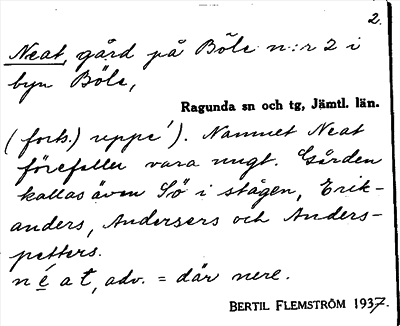 2.
Neat, gård på Böle n:r 2 i
byn Böle,
Ragunda sn och tg, Jämtl. län.
(forts.) uppe'). Namnet Neat
förefaller vara ungt. Gården
kallas även Sö i stågen, Erik-
anders, Andersers och Anders-
petters.
n é a t, adv. = där nere.
BERTIL FLEMSTRÖM 1937.